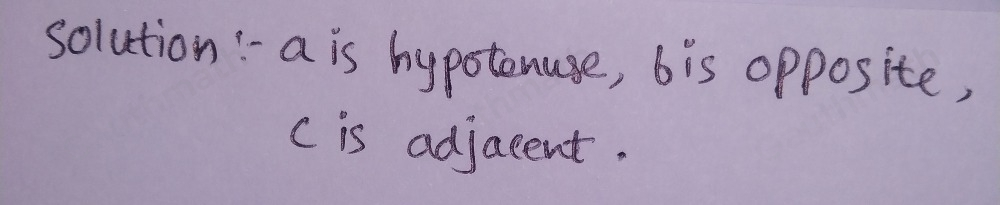 Solution :- a is hypotenuse, b is opposite,
c is adjacent.